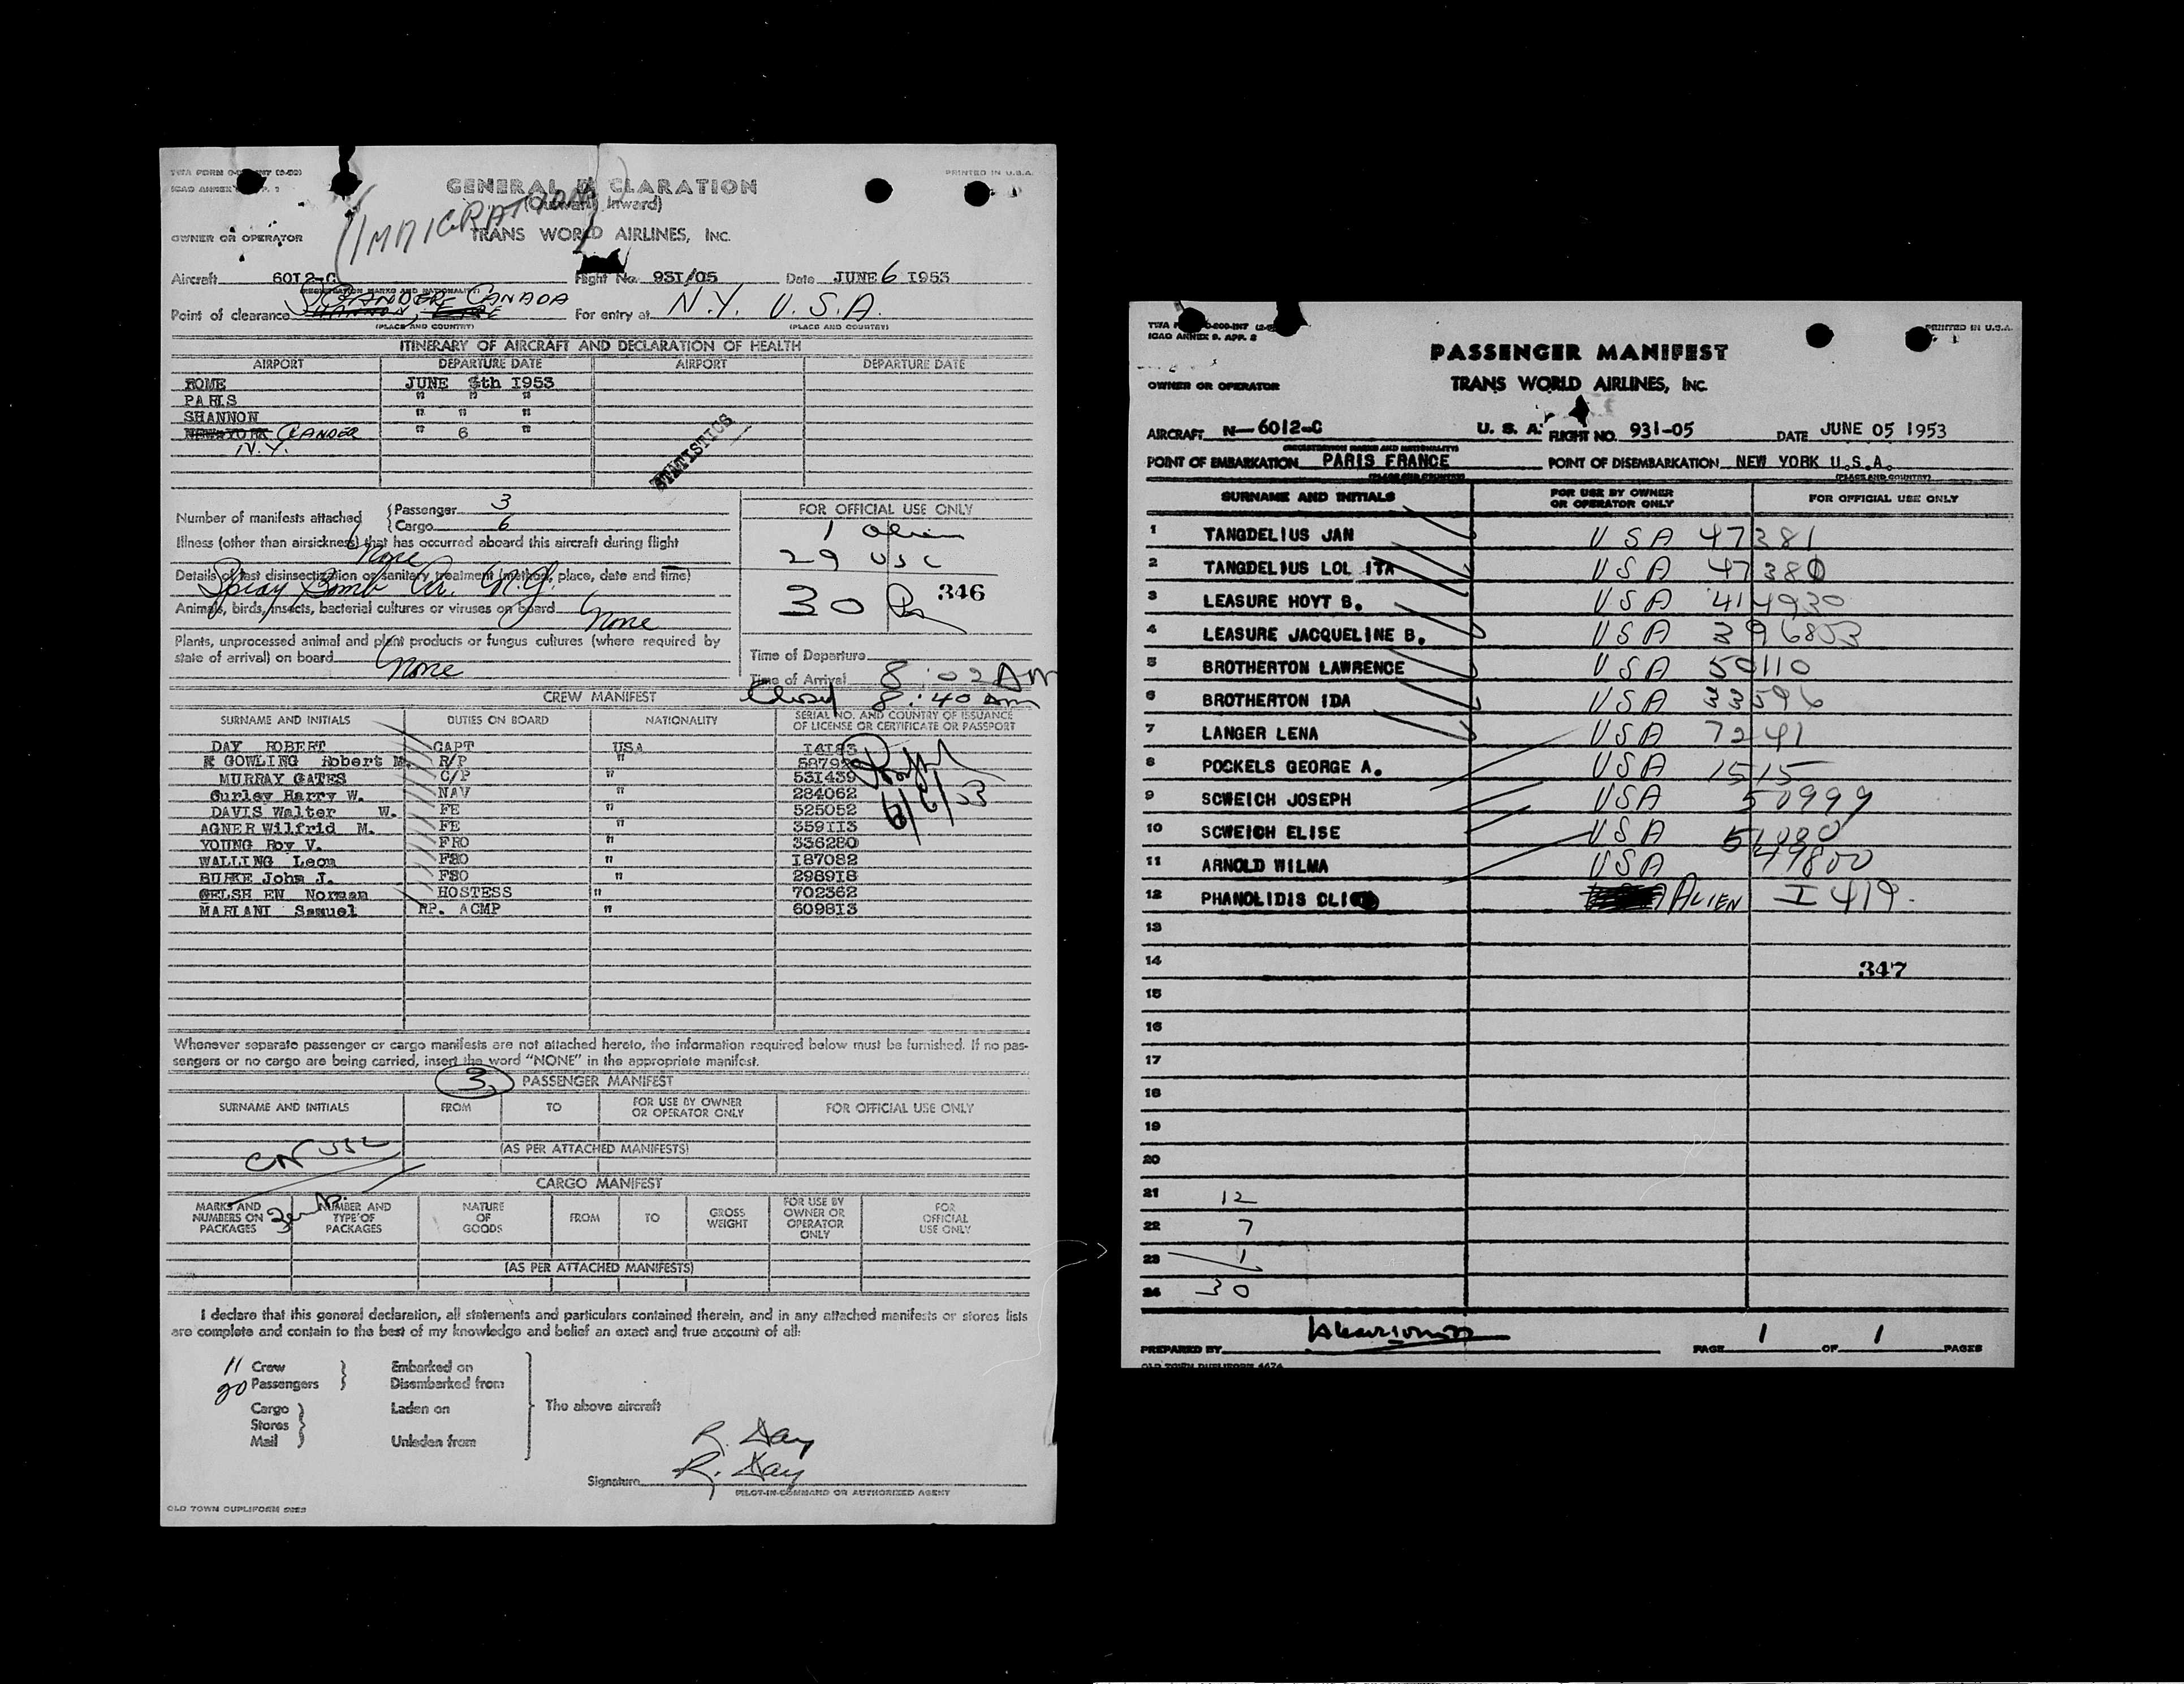 PRINTED IN U.S.A.
GENERAL DECLARATION
(Outward Inward)
(IMMIGRATION)
OWNER OR OPERATOR TRANS WORLD AIRLINES, INC.
Aircraft 6012-C Flight No. 931/05 Date JUNE 6 1953
(REGISTRATION MARKS AND NATIONALITY)
GANDER CANADA
Point of clearance SHANNON, For entry at N.Y. U.S.A.
(PLACE AND COUNTRY) (PLACE AND COUNTRY)
ITINERARY OF AIRCRAFT AND DECLARATION OF HEALTH
AIRPORT DEPARTURE DATE AIRPORT DEPARTURE DATE
ROME JUNE 5th 1953
PARIS " " "
SHANNON " " "
NEW YORK GANDER " 6 "
N.Y.
STATISTICS
Number of manifests attached Passenger 3
Cargo 6
FOR OFFICIAL USE ONLY
1 Alien
29 USC
30
346
Illness (other than airsickness) that has occurred aboard this aircraft during flight
None
Details of last disinsectization or sanitary treatment (method, place, date and time)
Spray Bomb
Animals, birds, insects, bacterial cultures or viruses on board None
Plants, unprocessed animal and plant products or fungus cultures (where required by
state of arrival) on board None
Time of Departure
Time of Arrival 8:02 AM
Closed 8:40 am
CREW MANIFEST
SURNAME AND INITIALS DUTIES ON BOARD NATIONALITY SERIAL NO. AND COUNTRY OF ISSUANCE
OF LICENSE OR CERTIFICATE OR PASSPORT
DAY ROBERT CAPT USA 14183
GOWLING Robert M. R/P " 58792
MURRAY GATES C/P " 531439
Gurley Harry W. NAV " 284062
DAVIS Walter W. FE " 525052
AGNER Wilfrid M. FE " 359113
YOUNG Roy V. FRO " 336280
WALLING Leon FSO " 187082
BURKE John J. FSO " 298918
GELSH EN Norman HOSTESS " 702362
MARIANI Samuel RP. ACMP " 609813
6/6/53
Whenever separate passenger or cargo manifests are not attached hereto, the information required below must be furnished. If no pas-
sengers or no cargo are being carried, insert the word "NONE" in the appropriate manifest.
3 PASSENGER MANIFEST
SURNAME AND INITIALS FROM TO FOR USE BY OWNER
OR OPERATOR ONLY FOR OFFICIAL USE ONLY
(AS PER ATTACHED MANIFESTS)
CARGO MANIFEST
MARKS AND
NUMBERS ON
PACKAGES
NUMBER AND
TYPE OF
PACKAGES
NATURE
OF
GOODS
FROM
TO
GROSS
WEIGHT
FOR USE BY
OWNER OR
OPERATOR
ONLY
FOR
OFFICIAL
USE ONLY
(AS PER ATTACHED MANIFESTS)
I declare that this general declaration, all statements and particulars contained therein, and in any attached manifests or stores lists
are complete and contain to the best of my knowledge and belief an exact and true account of all:
11 Crew Embarked on
20 Passengers Disembarked from
Cargo Laden on
Stores
Mail Unladen from
The above aircraft
R. Day
Signature R. Day
PILOT-IN-COMMAND OR AUTHORIZED AGENT
OLD TOWN DUPLIFORM
PRINTED IN U.S.A.
ICAO ANNEX 9. APP. 2
PASSENGER MANIFEST
OWNER OR OPERATOR TRANS WORLD AIRLINES, INC.
AIRCRAFT N-6012-C U. S. A. FLIGHT NO. 931-05 DATE JUNE 05 1953
(REGISTRATION MARKS AND NATIONALITY)
POINT OF EMBARKATION PARIS FRANCE POINT OF DISEMBARKATION NEW YORK U.S.A.
(PLACE AND COUNTRY) (PLACE AND COUNTRY)
SURNAME AND INITIALS FOR USE BY OWNER
OR OPERATOR ONLY FOR OFFICIAL USE ONLY
1 TANGDELIUS JAN USA 47381
2 TANGDELIUS LOL ITA USA 47380
3 LEASURE HOYT B. USA 414930
4 LEASURE JACQUELINE B. USA 396853
5 BROTHERTON LAWRENCE USA 50110
6 BROTHERTON IDA USA 33596
7 LANGER LENA USA 7241
8 POCKELS GEORGE A. USA 1515
9 SCWEICH JOSEPH USA 50999
10 SCWEICH ELISE USA 51000
11 ARNOLD WILMA USA 49800
12 PHANOLIDIS ALIEN I 419
13
14 347
15
16
17
18
19
20
21 12
22 7
23 1
24 30
PREPARED BY PAGE 1 OF 1 PAGES
OLD TOWN DUPLIFORM 4474